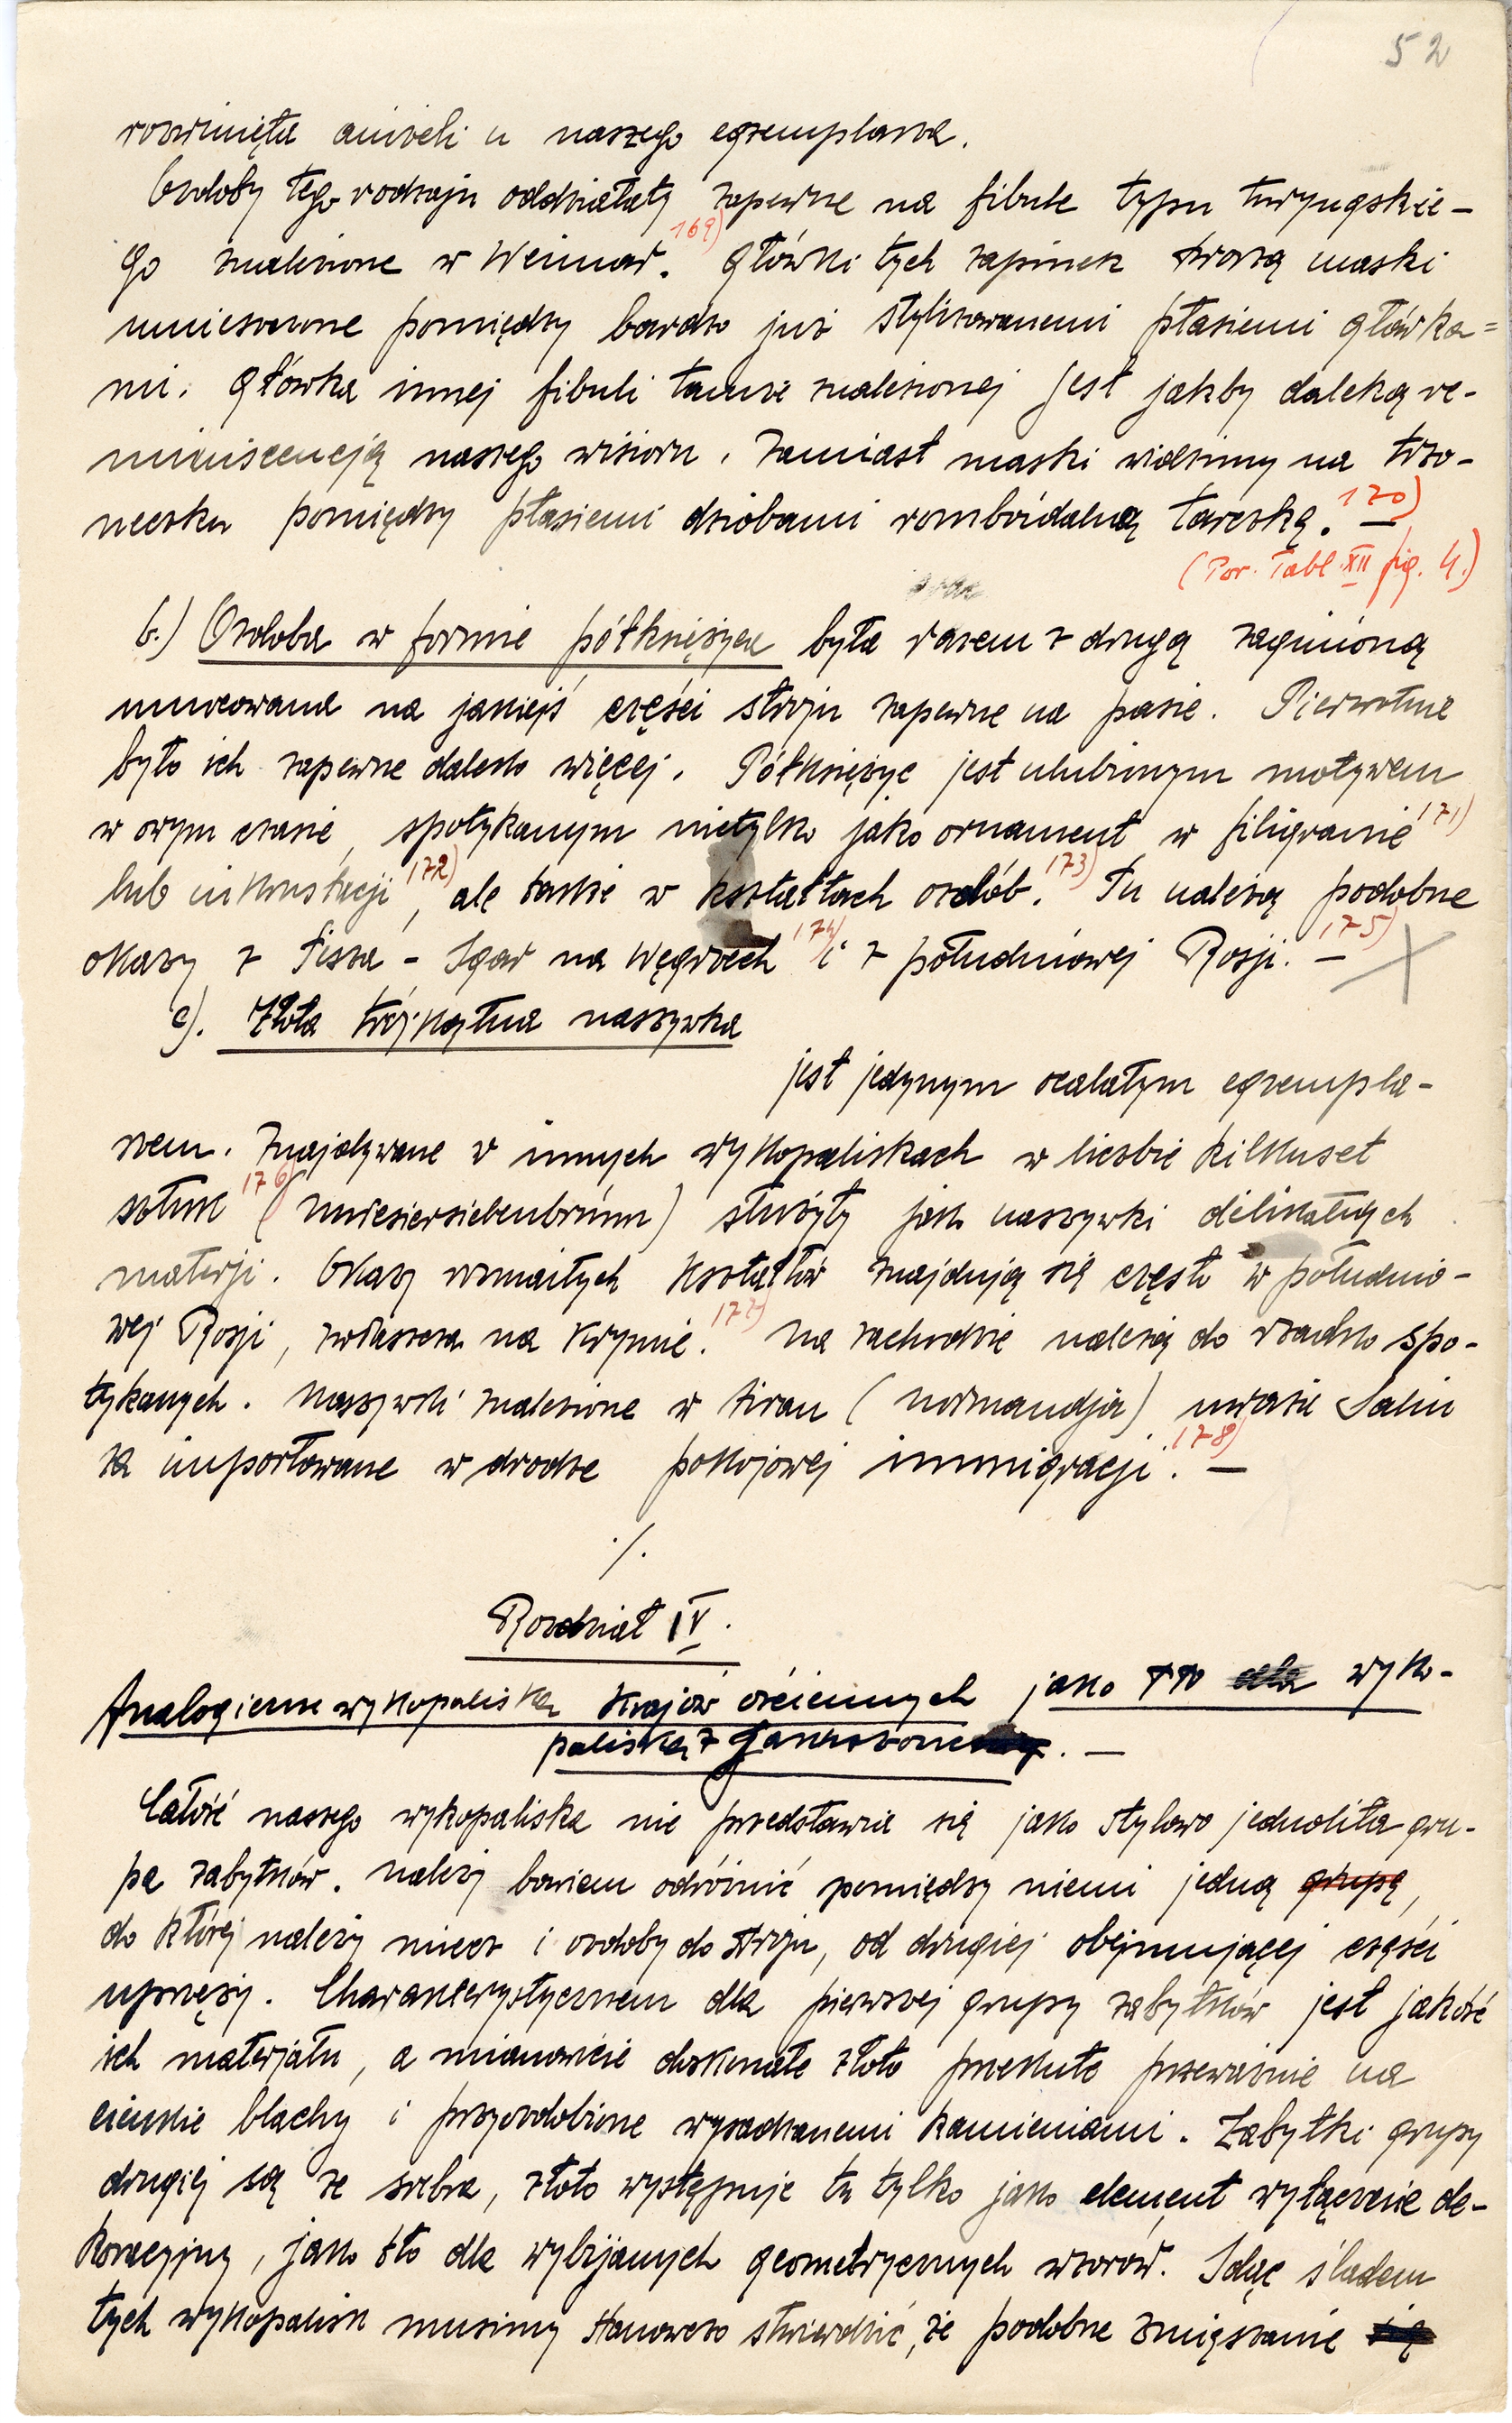 52
rozwinięta aniżeli u naszego egzemplarza.
Ozdoby tego rodzaju oddziałały zapewne na fibule typu turyngskie-
go znalezione w Weimar.169) Główki tych zapinek tworzą maski
umieszczone pomiędzy bardzo już stylizowanemi ptasiemi główka=
mi. Główka innej fibuli tamże znalezionej jest jakby daleką re-
miniscencją naszego wisioru. Zamiast maski widzimy na trzo-
neczku pomiędzy ptasiemi dziobami romboidalną tarczką.170) —
(Por. Tabl. XII fig. 4.)
b.) Ozdoba w formie półksiężyca była razem z drugą zaginioną
umocowana na jakiejś części stroju zapewne na pasie. Pierwotnie
było ich zapewne daleko więcej. Półksiężyc jest ulubionym motywem
w owym czasie, spotykanym nietylko jako ornament w filigranie171)
lub inkrustacji172), ale także w kształtach ozdób.173) Tu należą podobne
okazy z Tisza - Igar na Węgrzech174) i z południowej Rosji.175) —
c). Złota trójkątna naszywka
jest jedynym ocalałym egzempla-
rzem. Znajdywane w innych wykopaliskach w liczbie kilkuset
sztuk176) (Untersiebenbrunn) służyły jako naszywki delikatnych
materji. Okazy rozmaitych kształtów znajdują się często w południo-
wej Rosji, zwłaszcza na Krymie.177) Na zachodzie należą do rzadko spo-
tykanych. Naszywki znalezione w Airan (Normandja) uważa Salin
za importowane w drodze pokojowej immigracji.178) —
./.
Rozdział IV.
Analogiczne wykopaliska krajów ościennych jako tło dla wyko-
paliska z Jakuszowic. —
Całość naszego wykopaliska nie przedstawia się jako stylowo jednolita gru-
pa zabytków. Należy bowiem odróżnić pomiędzy niemi jedną grupę,
do której należy miecz i ozdoby do stroju, od drugiej obejmującej części
uprzęży. Charakterystycznem dla pierwszej grupy zabytków jest jakość
ich materjału, a mianowicie doskonałe złoto przekute przeważnie na
cienkie blachy i przyozdobione wysadzanemi kamieniami. Zabytki grupy
drugiej są ze srebra, złoto występuje tu tylko jako element wyłącznie de-
koracyjny, jako tło dla wybijanych geometrycznych wzorów. Idąc śladem
tych wykopalisk musimy stanowczo stwierdzić, że podobne zmięszanie się